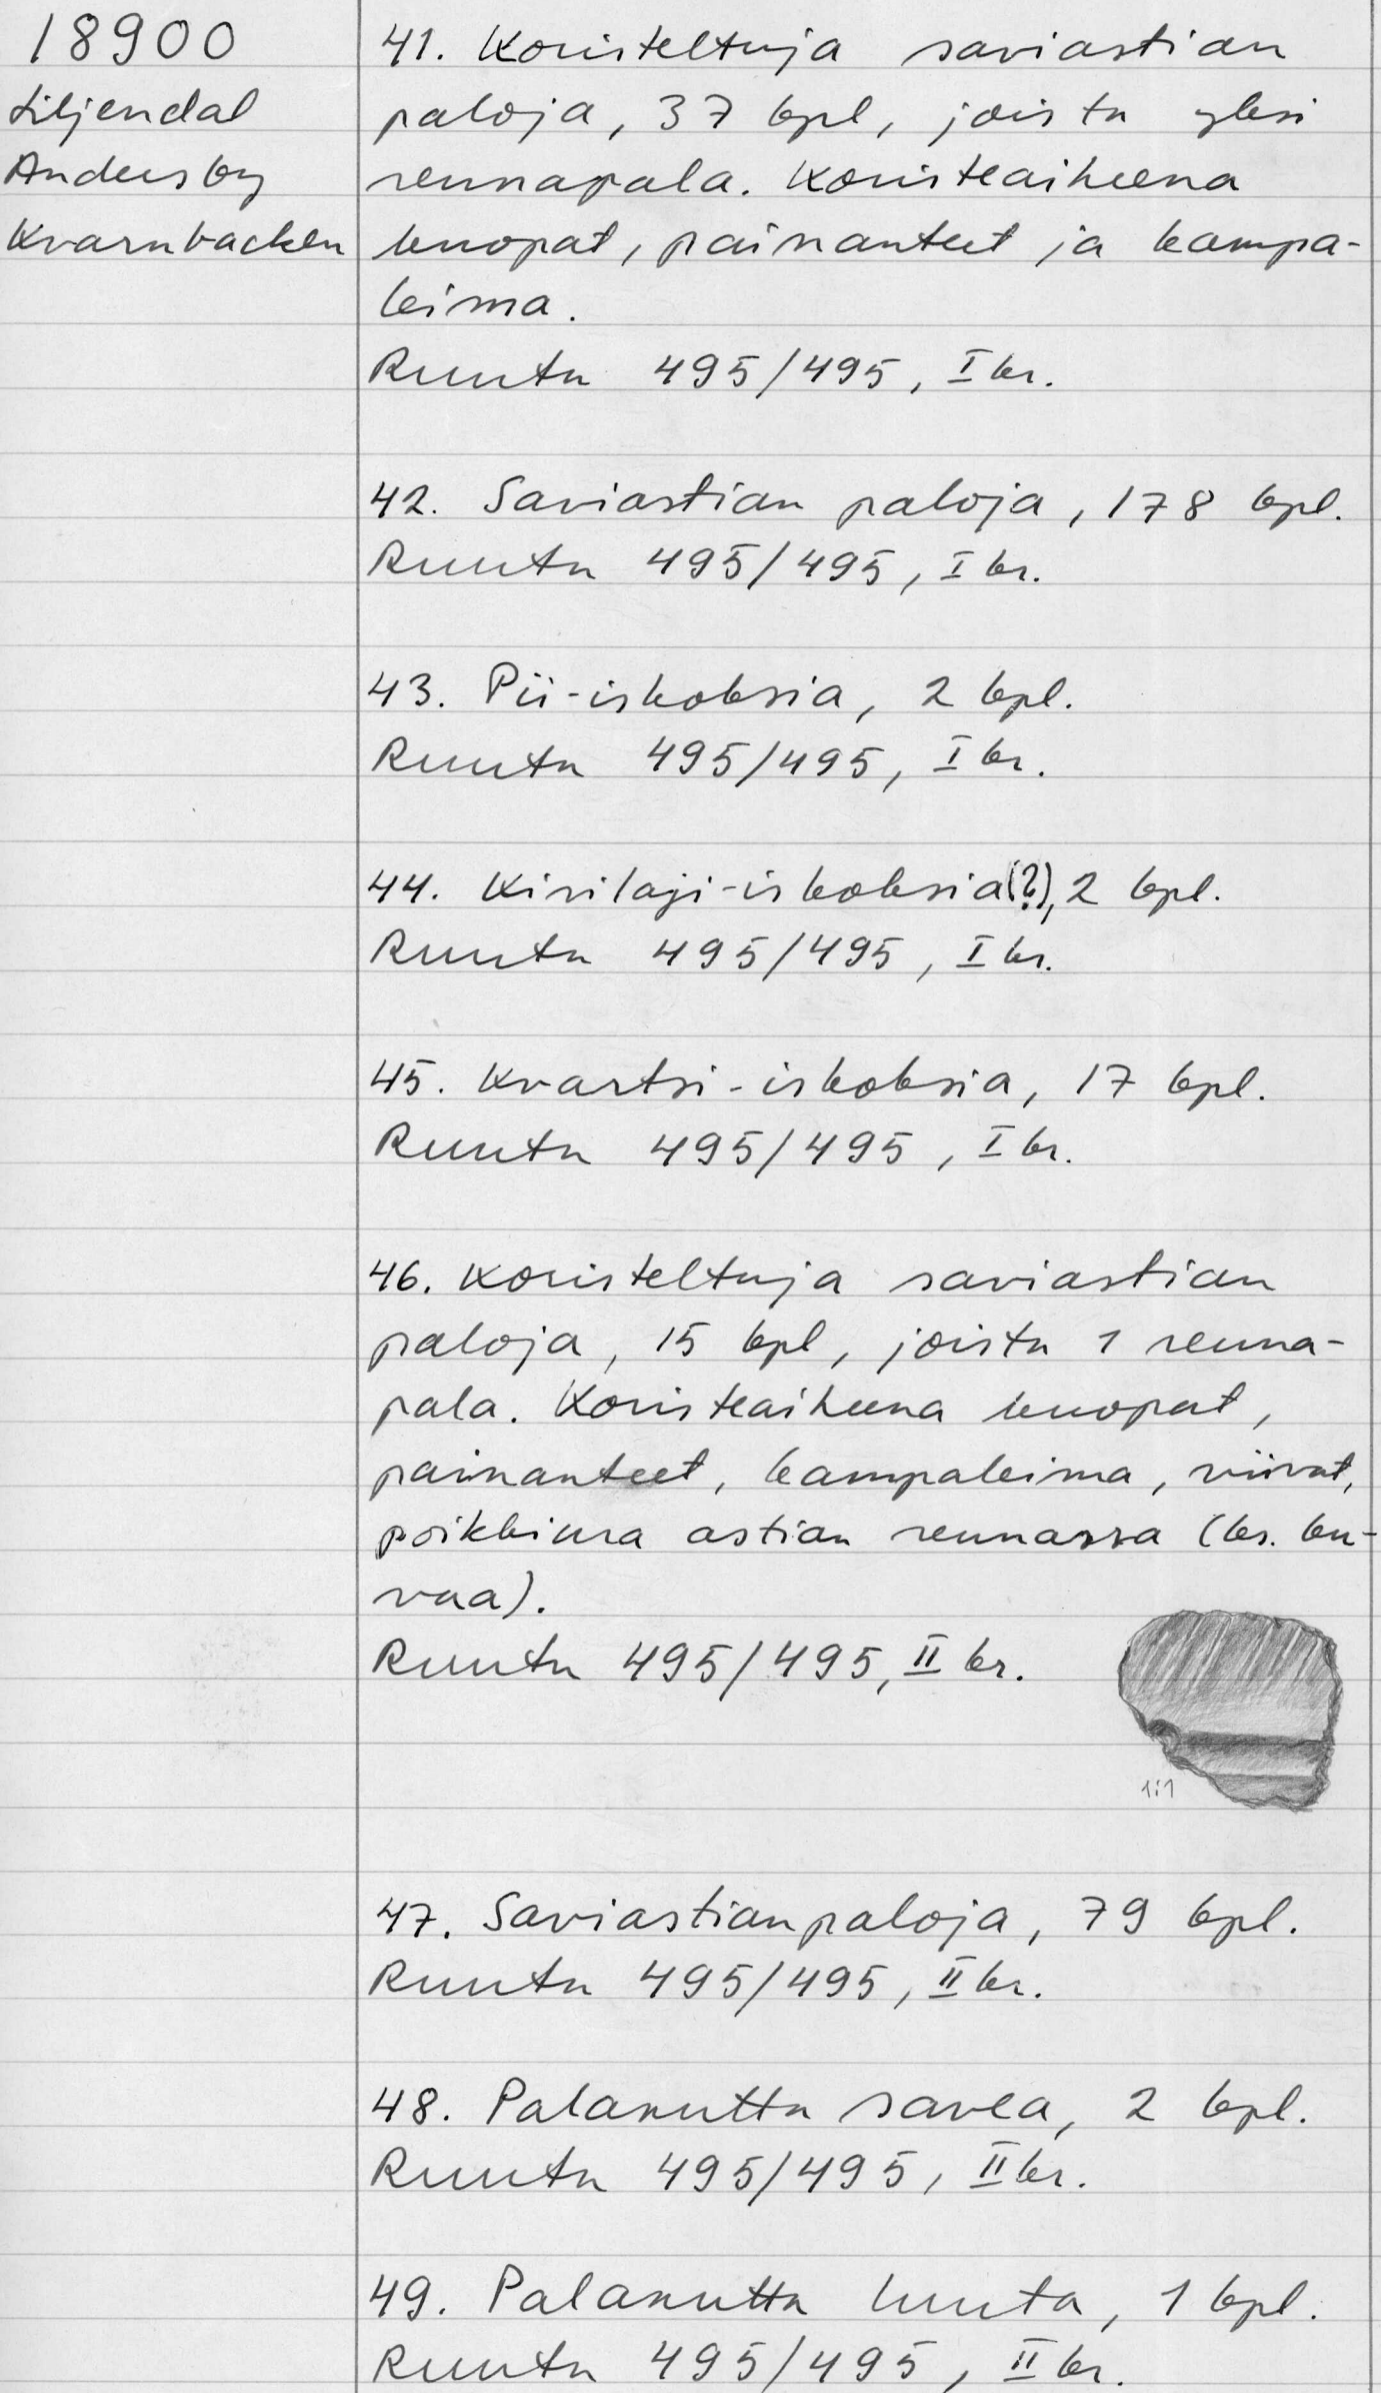 18900
Liljendal
Andersby
Kvarnbacken
41. Koristeltuja saviastian
paloja, 37 kpl, joista yksi
reunapala. Koristeaiheena
kuopat, painanteet ja kampa-
leima.
Ruutu 495/495, I kr.
42. Saviastian paloja, 178 kpl.
Ruutu 495/495, I kr.
43. Pii-iskoksia, 2 kpl.
Ruutu 495/495, I kr.
44. Kivilaji-iskoksia(?), 2 kpl.
Ruutu 495/495, I kr.
45. Kvartsi-iskoksia, 17 kpl.
Ruutu 495/495, I kr.
46. Koristeltuja saviastian
paloja, 15 kpl, joista 1 reuna-
pala. Koristeaiheena kuopat,
painanteet, kampaleima, viivat,
poikkiura astian reunassa (ks. ku-
vaa).
Ruutu 495/495, II kr.
1:1
47. Saviastianpaloja, 79 kpl.
Ruutu 495/495, II kr.
48. Palanutta savea, 2 kpl.
Ruutu 495/495, II kr.
49. Palanutta luuta, 1 kpl.
Ruutu 495/495, II kr.